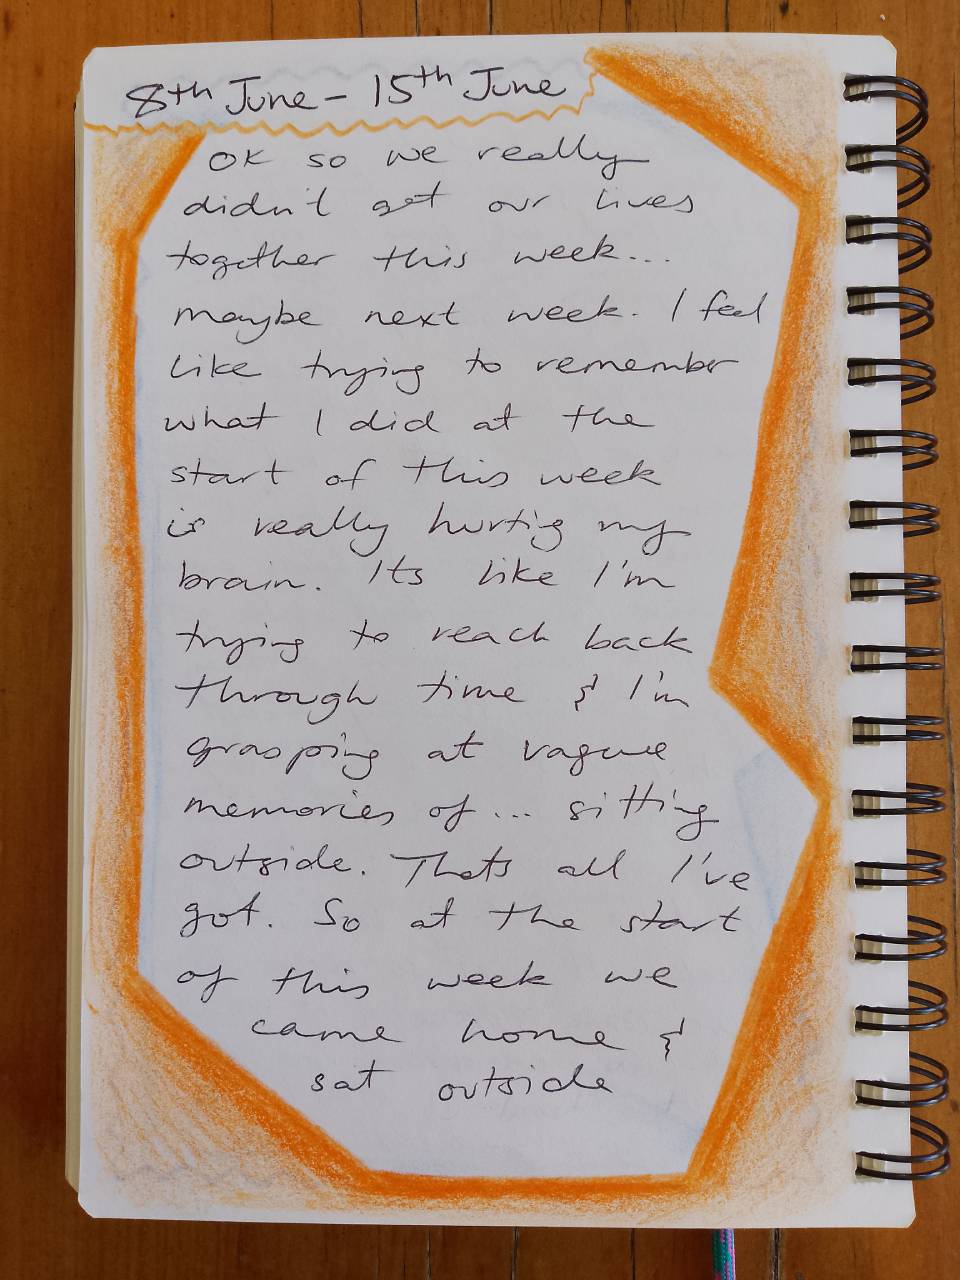 8th June - 15th June
OK so we really
didn't get our lives
together this week...
maybe next week. I feel
like trying to remember
what I did at the
start of this week
is really hurtig my
brain. Its like I'm
trying to reach back
through time & I'm
grasping at vague
memories of... sitting
outside. Thats all I've
got. So at the start
of this week we
came home &
sat outside